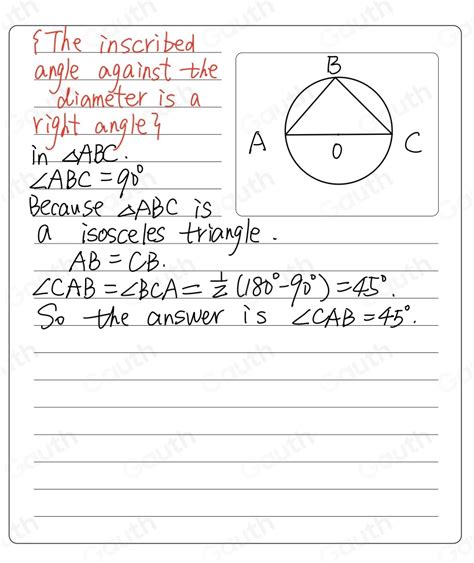 {The inscribed
angle against the
diameter is a
right angle}
in △ABC.
∠ABC = 90°
Because △ABC is
a isosceles triangle.
AB = CB.
∠CAB = ∠BCA = 1/2 (180° - 90°) = 45°.
So the answer is ∠CAB = 45°.
B
A
O
C
Gauth